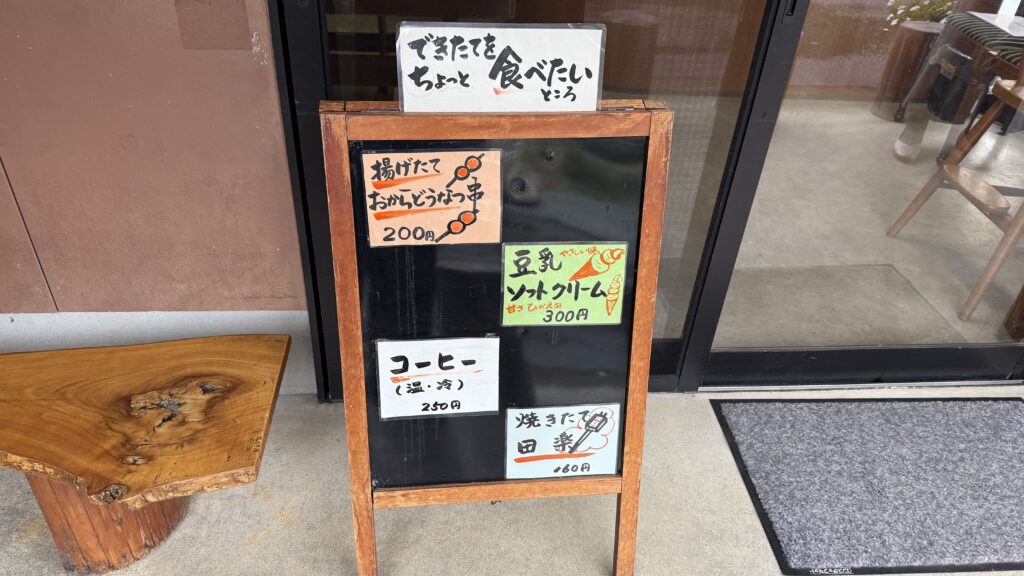 できたてを
ちょっと 食べたい
ところ
揚げたて
おからどうなつ串
200円
豆乳 やさしい味
ソフトクリーム
甘さ ひかえ目
300円
コーヒー
(温・冷)
250円
焼きたて
田楽
160円